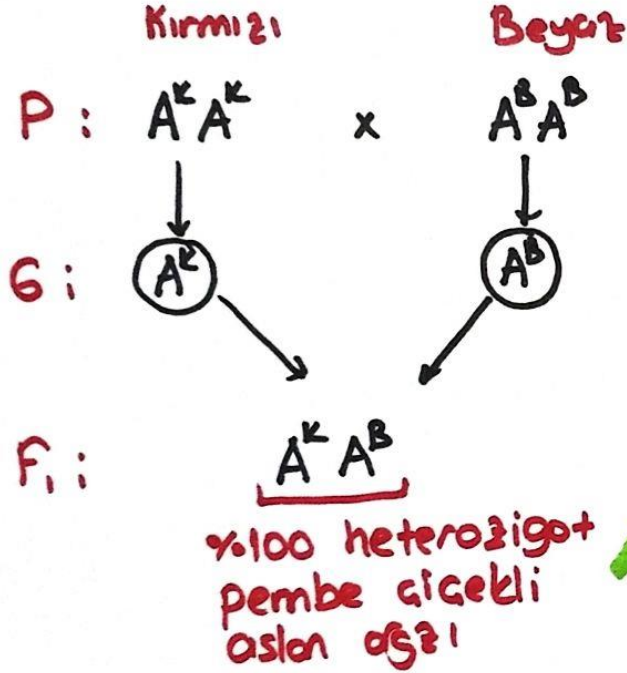 Kırmızı Beyaz
P: AᴷAᴷ x AᴮAᴮ
G: Aᴷ Aᴮ
F₁: AᴷAᴮ
%100 heterozigot
pembe çiçekli
aslan ağzı